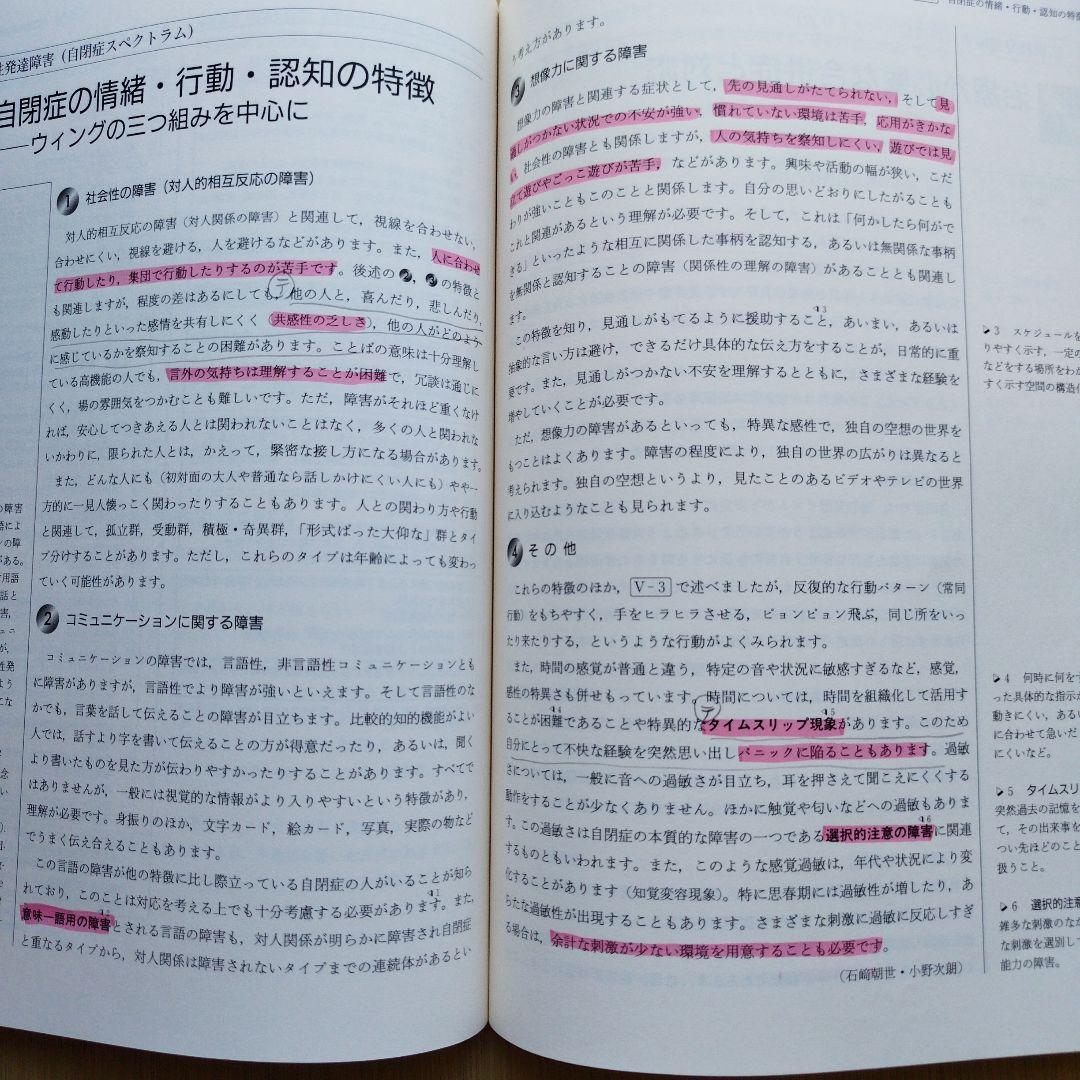 性発達障害（自閉症スペクトラム）
自閉症の情緒・行動・認知の特徴
――ウィングの三つ組みを中心に
1 社会性の障害（対人的相互反応の障害）
対人的相互反応の障害（対人関係の障害）と関連して，視線を合わせない，
合わせにくい，視線を避ける，人を避けるなどがあります。また，人に合わせ
て行動したり，集団で行動したりするのが苦手です。後述の2，3の特徴と
も関連しますが，程度の差はあるにしても，他の人と，喜んだり，悲しんだり，
感動したりといった感情を共有しにくく（共感性の乏しさ），他の人がどのよう
に感じているかを察知することの困難があります。ことばの意味は十分理解し
ている高機能の人でも，言外の気持ちは理解することが困難で，冗談は通じに
くく，場の雰囲気をつかむことも難しいです。ただ，障害がそれほど重くなけ
れば，安心してつきあえる人とは関われないことはなく，多くの人と関われな
いかわりに，限られた人とは，かえって，緊密な接し方になる場合があります。
また，どんな人にも（初対面の大人や普通なら話しかけにくい人にも）やや一
方的に一見人懐っこく関わったりすることもあります。人との関わり方や行動
と関連して，孤立群，受動群，積極・奇異群，「形式ばった大仰な」群とタイ
プ分けすることがあります。ただし，これらのタイプは年齢によっても変わっ
ていく可能性があります。
2 コミュニケーションに関する障害
コミュニケーションの障害では，言語性，非言語性コミュニケーションとも
に障害がありますが，言語性でより障害が強いといえます。そして言語性のな
かでも，言葉を話して伝えることの障害が目立ちます。比較的知的機能がよい
人では，話すより字を書いて伝えることの方が得意だったり，あるいは，聞く
より書いたものを見た方が伝わりやすかったりすることがあります。すべてで
はありませんが，一般には視覚的な情報がより入りやすいという特徴があり，
理解が必要です。身振りのほか，文字カード，絵カード，写真，実際の物など
でうまく伝え合えることもあります。
この言語の障害が他の特徴に比し際立っている自閉症の人がいることが知ら
れており，このことは対応を考える上でも十分考慮する必要があります。また，
意味―語用の障害とされる言語の障害も，対人関係が明らかに障害され自閉症
と重なるタイプから，対人関係は障害されないタイプまでの連続体があるとい
自閉症の情緒・行動・認知の特徴
う考え方があります。
3 想像力に関する障害
想像力の障害と関連する症状として，先の見通しがたてられない，そして見
通しがつかない状況での不安が強い，慣れていない環境は苦手，応用がきかな
い，社会性の障害とも関係しますが，人の気持ちを察知しにくい，遊びでは見
立て遊びやごっこ遊びが苦手，などがあります。興味や活動の幅が狭い，こだ
わりが強いこともこのことと関係します。自分の思いどおりにしたがることも
これと関連があるという理解が必要です。そして，これは「何かしたら何がで
きる」といったような相互に関係した事柄を認知する，あるいは無関係な事柄
を無関係と認知することの障害（関係性の理解の障害）があることとも関連し
ます。
この特徴を知り，見通しがもてるように援助すること，あいまい，あるいは
抽象的な言い方は避け，できるだけ具体的な伝え方をすることが，日常的に重
要です。また，見通しがつかない不安を理解するとともに，さまざまな経験を
増やしていくことが必要です。
ただ，想像力の障害があるといっても，特異な感性で，独自の空想の世界を
もつことはよくあります。障害の程度により，独自の世界の広がりは異なると
考えられます。独自の空想というより，見たことのあるビデオやテレビの世界
に入り込むようなことも見られます。
4 その他
これらの特徴のほか，V-3で述べましたが，反復的な行動パターン（常同
行動）をもちやすく，手をヒラヒラさせる，ピョンピョン飛ぶ，同じ所をいっ
たり来たりする，というような行動がよくみられます。
また，時間の感覚が普通と違う，特定の音や状況に敏感すぎるなど，感覚，
感性の特異さも併せもっています。時間については，時間を組織化して活用す
ることが困難であることや特異的なタイムスリップ現象があります。このため
自分にとって不快な経験を突然思い出しパニックに陥ることもあります。過敏
さについては，一般に音への過敏さが目立ち，耳を押さえて聞こえにくくする
動作をすることが少なくありません。ほかに触覚や匂いなどへの過敏もありま
す。この過敏さは自閉症の本質的な障害の一つである選択的注意の障害に関連
するものともいわれます。また，このような感覚過敏は，年代や状況により変
化することがあります（知覚変容現象）。特に思春期には過敏性が増したり，あ
らたな過敏性が出現することもあります。さまざまな刺激に過敏に反応しすぎ
る場合は，余計な刺激が少ない環境を用意することも必要です。
（石﨑朝世・小野次朗）
3 スケジュールを
りやすく示す，一定の
などをする場所をわか
すく示す空間の構造化
4 何時に何をす
った具体的な指示が
動きにくい，ある
に合わせて急いだ
にくいなど。
5 タイムスリ
突然過去の記憶を
て，その出来事を
つい先ほどのこと
扱うこと。
6 選択的注意
雑多な刺激のなか
な刺激を選別して
能力の障害。